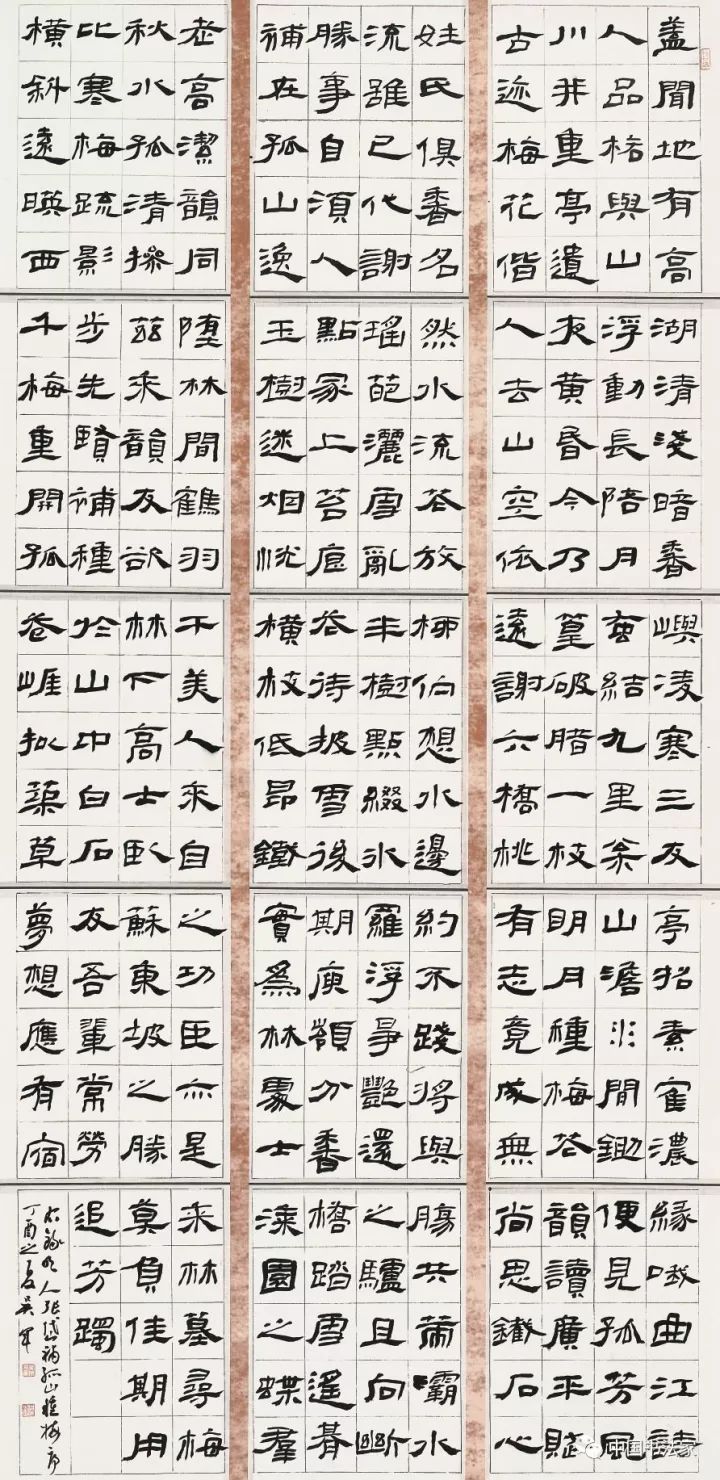 蓋聞地有高
人品格與山
川并重亭遺
古迹梅花偕
姓氏俱香名
流雖已代謝
勝事自須人
補在孤山逸
老高潔韻同
秋水孤清操
比寒梅疏影
橫斜遠暎西
湖清淺暗香
浮動長陪月
夜黃昏今乃
人去山空依
然水流花放
瑤葩灑雪亂
點冢上苔痕
玉樹迷烟恍
墮林間鶴羽
茲來韻友欲
步先賢補種
千梅重開孤
嶼凌寒三友
蚤結九里松
篁破腊一枝
遠謝六橋桃
柳佇想水邊
半樹點綴冰
花待披雪後
橫枝低昂鐵
干美人來自
林下高士臥
於山中白石
蒼崕擬築草
亭招素隺濃
山澹水間鋤
明月種梅花
有志竟成無
約不踐將與
羅浮爭艷還
期庾嶺分香
實爲林處士
之功臣亦是
蘇東坡之勝
友吾輩常勞
夢想應有宿
緣哦曲江詩
便見孤芳風
韻讀廣平賦
尚思鐵石心
腸共策灞水
之驢且向斷
橋踏雪遙期
漆園之蝶羣
來林墓尋梅
莫負佳期用
追芳躅
右錄明人張岱補孤山種梅序
丁酉之夏吳軍
中国书法家